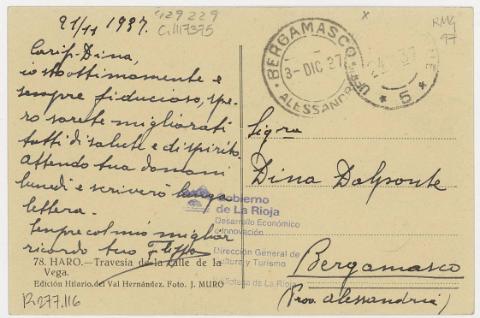 21/11 1937.
429229
C.1117375
RMG
97
Cariss. Dina,
io sto ottimamente e
sempre fiducioso, spe-
ro sarete migliorati
tutti di salute e di spirito.
Attendo tua domani
lunedì e scriverò lunga
lettera.
Sempre col mio miglior
ricordo tuo Filippo
78. HARO.—Travesía de la calle de la
Vega.
Edición Hilario del Val Hernández. Foto. J. MURO
R-277.116
BERGAMASCO
3-DIC 37
ALESSANDRIA
* 5 *
Sig.ra
Dina Dalponte
Gobierno
de La Rioja
Desarrollo Económico
e Innovación
Dirección General de
Cultura y Turismo
Biblioteca de La Rioja
Bergamasco
(Prov. Alessandria)